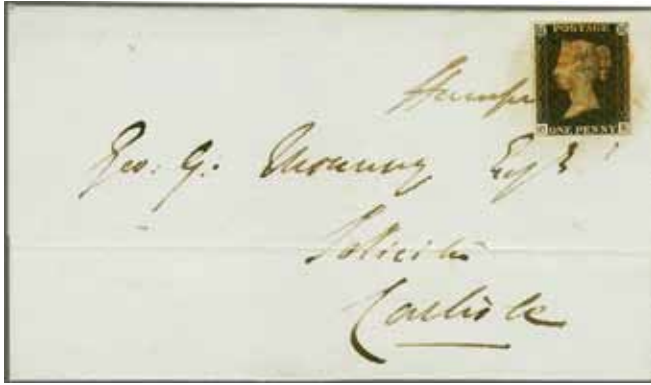 POSTAGE
ONE PENNY
Geo. G. Mounsey Esqr
Solicitor
Carlisle